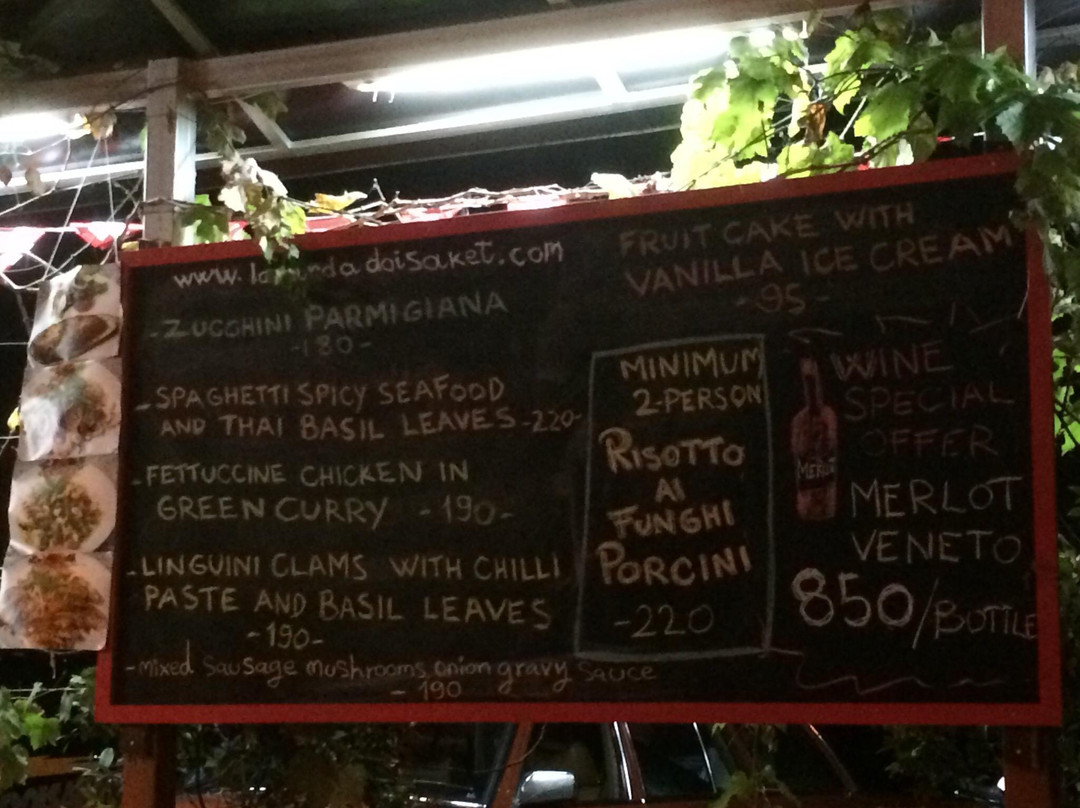 www.lalunadadoisaket.com
-ZUCCHINI PARMIGIANA
-180-
-SPAGHETTI SPICY SEAFOOD
AND THAI BASIL LEAVES -220-
-FETTUCCINE CHICKEN IN
GREEN CURRY -190-
-LINGUINI CLAMS WITH CHILLI
PASTE AND BASIL LEAVES
-190-
-mixed sausage mushrooms onion gravy sauce
-190
FRUIT CAKE WITH
VANILLA ICE CREAM
-95-
MINIMUM
2-PERSON
RISOTTO
AI
FUNGHI
PORCINI
-220
WINE
SPECIAL
OFFER
MERLOT
MERLOT
VENETO
850/BOTTLE